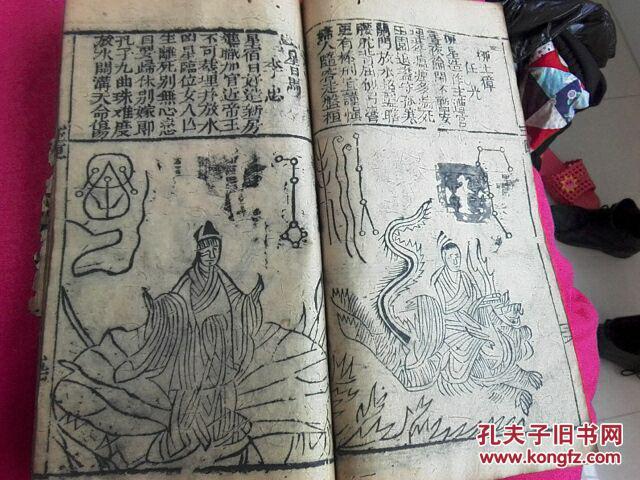 柳土獐
任光
柳星造作主遭官
晝夜偷閒不暫安
埋葬瘟 多 死
田園退盡守孤寒
開門放水招聾瞎
腰駝背曲似弓彎
更有棒刑宜謹慎
婦人隨客走盤桓
星日馬
李忠
星宿日好造新房
進職加官近帝王
不可埋葬并放水
凶星臨位女人亡
生離死別無心恋
自要歸休別嫁郎
孔子九曲珠難度
放水開溝天命傷
孔夫子旧书网
www.kongfz.com